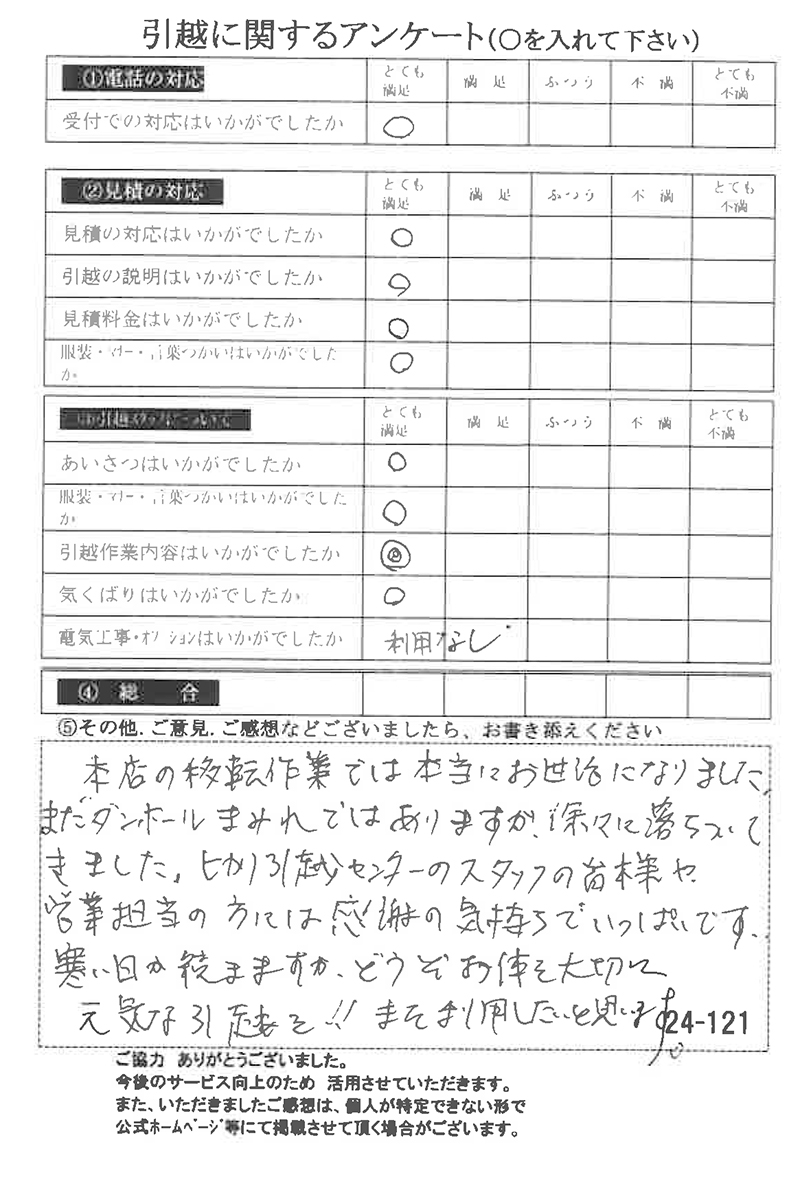 引越に関するアンケート(〇を入れて下さい)
①電話の対応 とても満足 満 足 ふつう 不 満 とても不満
受付での対応はいかがでしたか 〇
②見積の対応 とても満足 満 足 ふつう 不 満 とても不満
見積の対応はいかがでしたか 〇
引越の説明はいかがでしたか 〇
見積料金はいかがでしたか 〇
服装・マナー・言葉づかいはいかがでしたか 〇
とても満足 満 足 ふつう 不 満 とても不満
あいさつはいかがでしたか 〇
服装・マナー・言葉づかいはいかがでしたか 〇
引越作業内容はいかがでしたか ◎
気くばりはいかがでしたか 〇
電気工事・オプションはいかがでしたか 利用なし
④ 総 合
⑤その他.ご意見.ご感想などございましたら、お書き添えください
本店の移転作業では本当にお世話になりました。
まだダンボールまみれではありますが、徐々に落ちついて
きました。ヒカリ引越センターのスタッフの皆様や
営業担当の方には感謝の気持ちでいっぱいです。
寒い日が続きますが、どうぞお体を大切に
元気な引越を!! また利用したいと思います。
24-121
ご協力 ありがとうございました。
今後のサービス向上のため 活用させていただきます。
また、いただきましたご感想は、個人が特定できない形で
公式ホームページ等にて掲載させて頂く場合がございます。